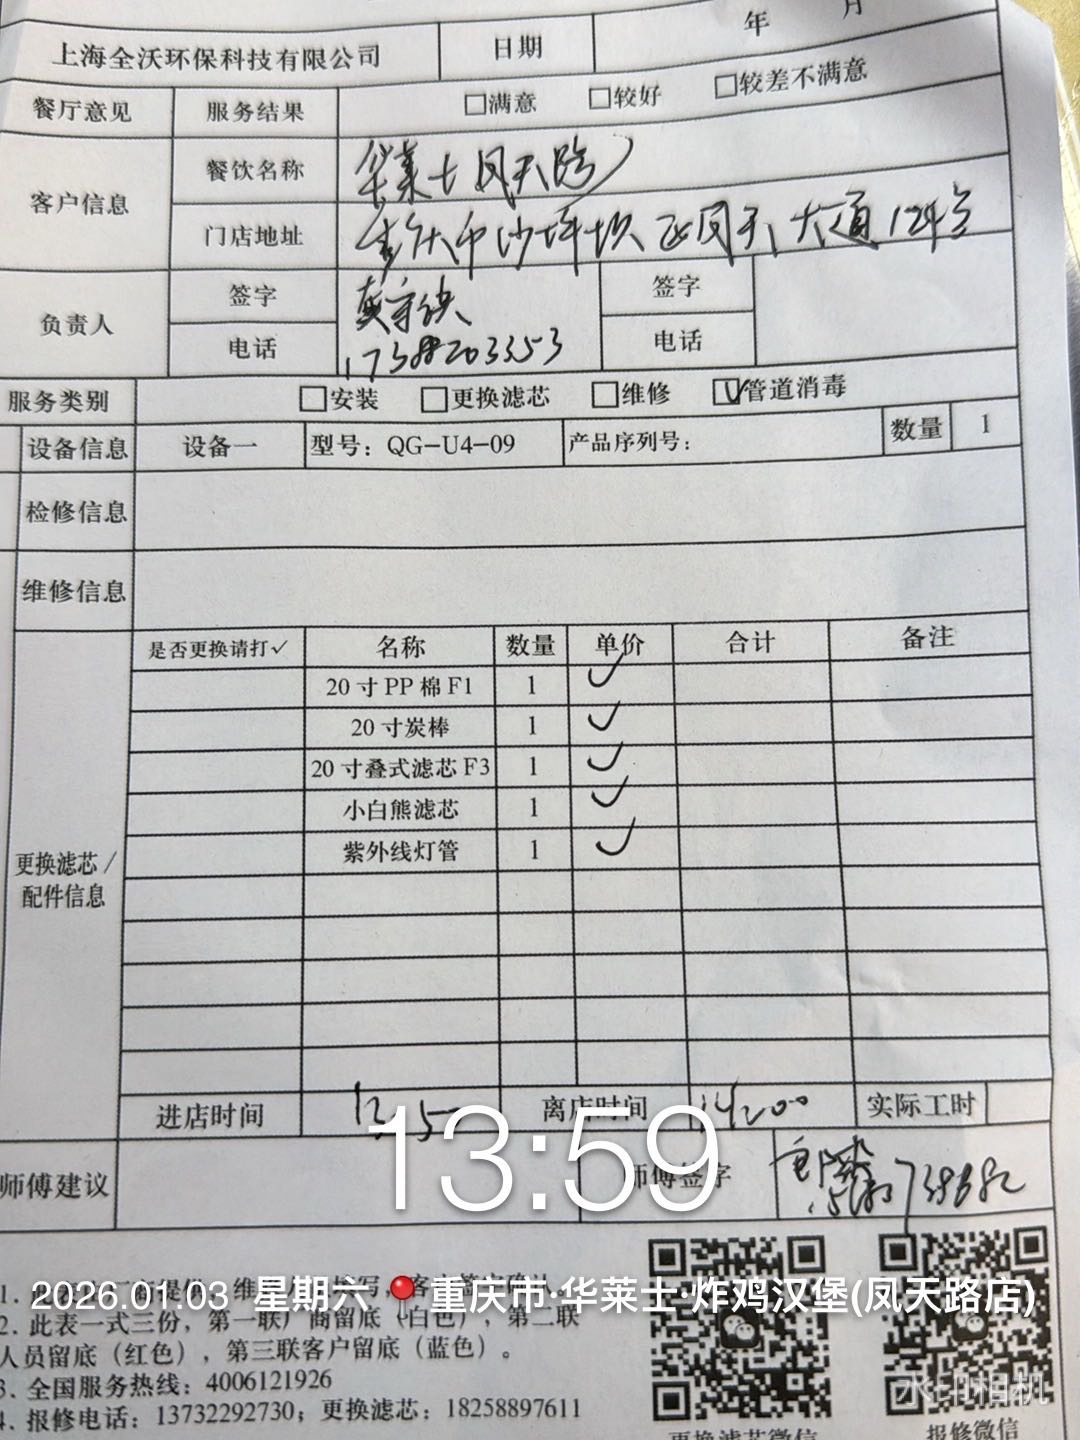 上海全沃环保科技有限公司 日期 年 月
餐厅意见 服务结果 □满意 □较好 □较差不满意
客户信息 餐饮名称 华莱士凤天路
门店地址 重庆市沙坪坝区凤天大道124号
负责人 签字 签字
电话 电话
服务类别 □安装 □更换滤芯 □维修 ☑管道消毒
设备信息 设备一 型号：QG-U4-09 产品序列号： 数量 1
检修信息
维修信息
更换滤芯/配件信息
是否更换请打✓ 名称 数量 单价 合计 备注
20寸PP棉F1 1 ✓
20寸炭棒 1 ✓
20寸叠式滤芯F3 1 ✓
小白熊滤芯 1 ✓
紫外线灯管 1 ✓
进店时间 离店时间 14:00 实际工时
13:59
师傅建议 师傅签字
2026.01.03 星期六 重庆市·华莱士·炸鸡汉堡(凤天路店)
2. 此表一式三份，第一联厂商留底（白色），第二联
人员留底（红色），第三联客户留底（蓝色）。
3. 全国服务热线：4006121926
4. 报修电话：13732292730；更换滤芯：18258897611
更换滤芯微信 报修微信
水印相机